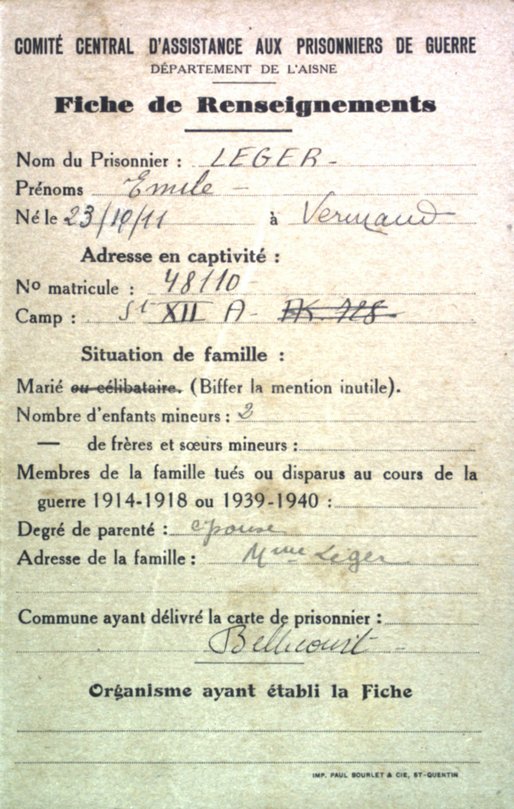 COMITÉ CENTRAL D'ASSISTANCE AUX PRISONNIERS DE GUERRE
DÉPARTEMENT DE L'AISNE
Fiche de Renseignements
Nom du Prisonnier : LEGER -
Prénoms Emile -
Né le 23/10/11 à Vermand
Adresse en captivité :
No matricule : 48110
Camp : St XII A - AK. 728
Situation de famille :
Marié ou célibataire. (Biffer la mention inutile).
Nombre d'enfants mineurs : 2
— de frères et sœurs mineurs :
Membres de la famille tués ou disparus au cours de la
guerre 1914-1918 ou 1939-1940 :
Degré de parenté : epouse
Adresse de la famille : Mme Leger
Commune ayant délivré la carte de prisonnier :
Bellicourt -
Organisme ayant établi la Fiche
IMP. PAUL BOURLET & CIE, ST-QUENTIN